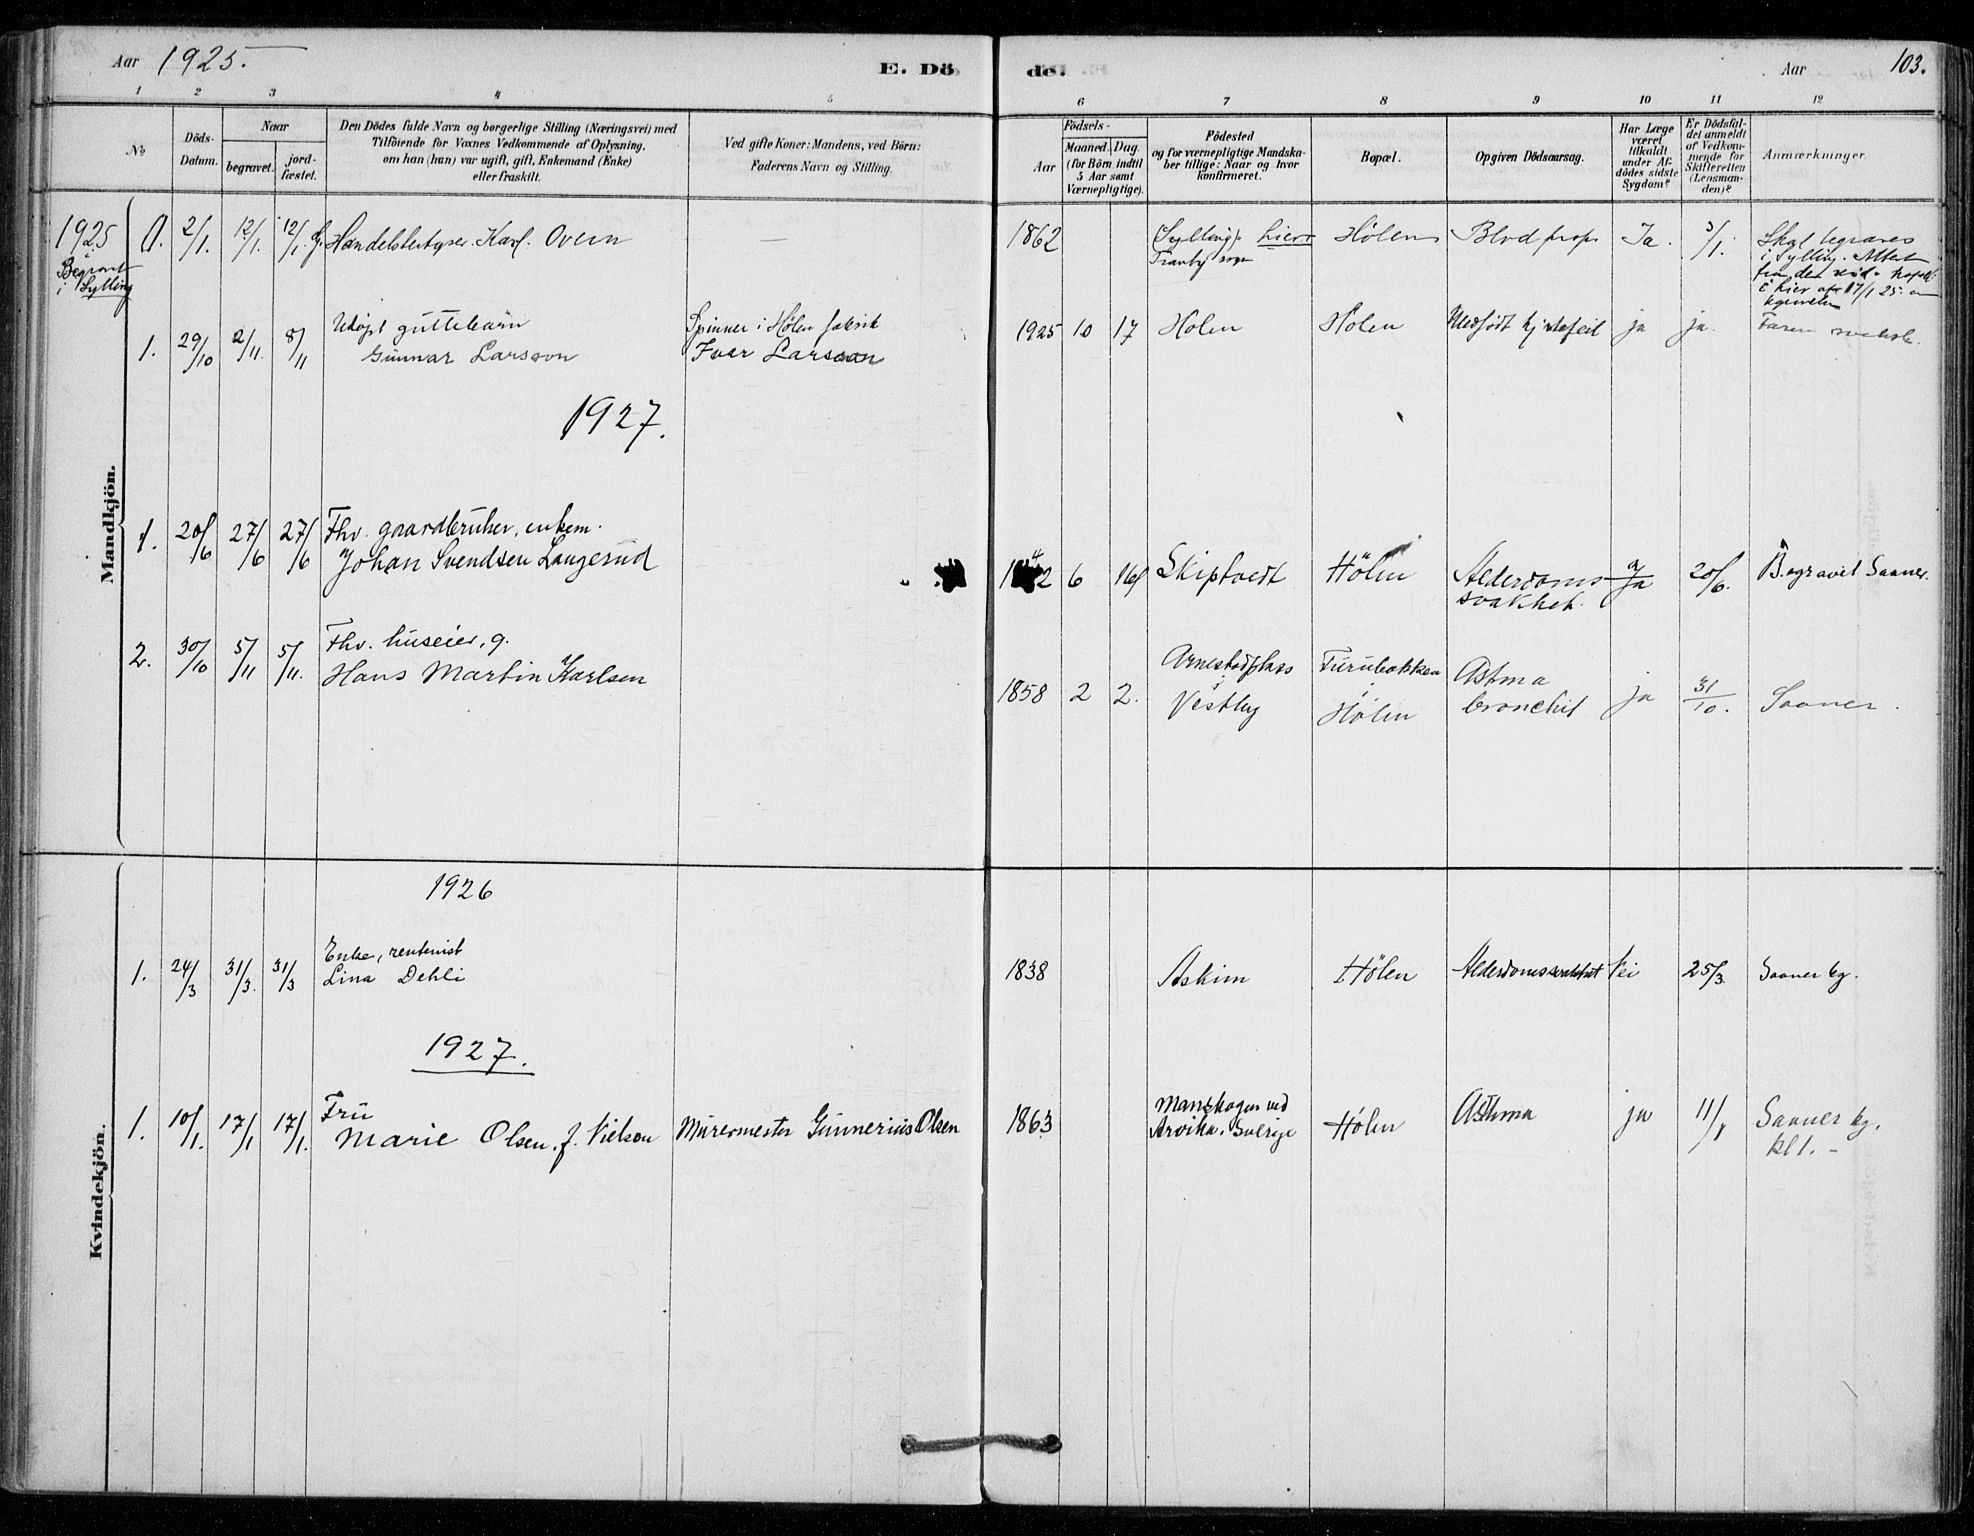 Aar 1925.
E. Dö
de.
Aar
103.
1 2 3 4 5 6 7 8 9 10 11 12
No
Döds-
Datum.
Naar
begravet.
jord-
fæstet.
Den Dödes fulde Navn og borgerlige Stilling (Næringsvei) med
Tilföiende for Voxnes Vedkommende af Oplysning,
om han (hun) var ugift, gift, Enkemand (Enke)
eller fraskilt.
Ved gifte Koner: Mandens, ved Börn:
Faderens Navn og Stilling.
Födsels-
Aar
Maaned. Dag.
(for Börn indtil
5 Aar samt
Værnepligtige).
Födested
og for værnepligtige Mandska-
ber tillige: Naar og hvor
konfirmeret.
Bopæl.
Opgiven Dödsaarsag.
Har Læge
været
tilkaldt
under Af-
dödes sidste
Sygdom?
Er Dödsfal-
det anmeldt
af Vedkom-
mende for
Skifteretten
(Lensman-
den)?
Anmærkninger.
Mandkjön.
1925
Begravt
i Sylling
0. 2/1. 12/1. 12/1. g. Handelsbestyrer Karl Overn — 1862 Sylling, Lier Hölen Blod prop Ja. 3/1. Skal begraves
Tranby sogn
i Sylling. Attest
i Lier 17/1 25.
Udöpt guttebarn Spinner i Hölen fabrik
1. 29/10 2/11. 8/11 Gunnar Larsson Ivar Larsson 1925 10 17 Holen Hölen Medfödt hjertefeil ja ja. Faren svensk.
1927.
Fhv. gaardbruker, enkem.
1. 20/6 27/6 27/6 Johan Svendsen Langerud 2 6 16 Skiptvedt Hölen Alderdoms- ja 20/6. Begravet Saaner.
svakhet.
Fhv. huseier, g.
2. 30/10 5/11 5/11. Hans Martin Karlsen 1858 2 2. Arnestadplass Furubakken Astma ja 31/10. Saaner.
i Vestby Hölen bronchit
Kvindekjön.
1926
Enke, rentenist
1. 24/3 31/3. 31/3 Lina Dehli 1838 Askim Hölen Alderdomssvakhet Nei 25/3. Saaner kg.
1927.
Fru
1. 10/1. 17/1 17/1. Marie Olsen, f. Nielsen Murermester Gunnerius Olsen 1863 Manskogen ved Hölen Asthma ja 11/1 Saaner kg.
Arvika, Sverige kl 1. –